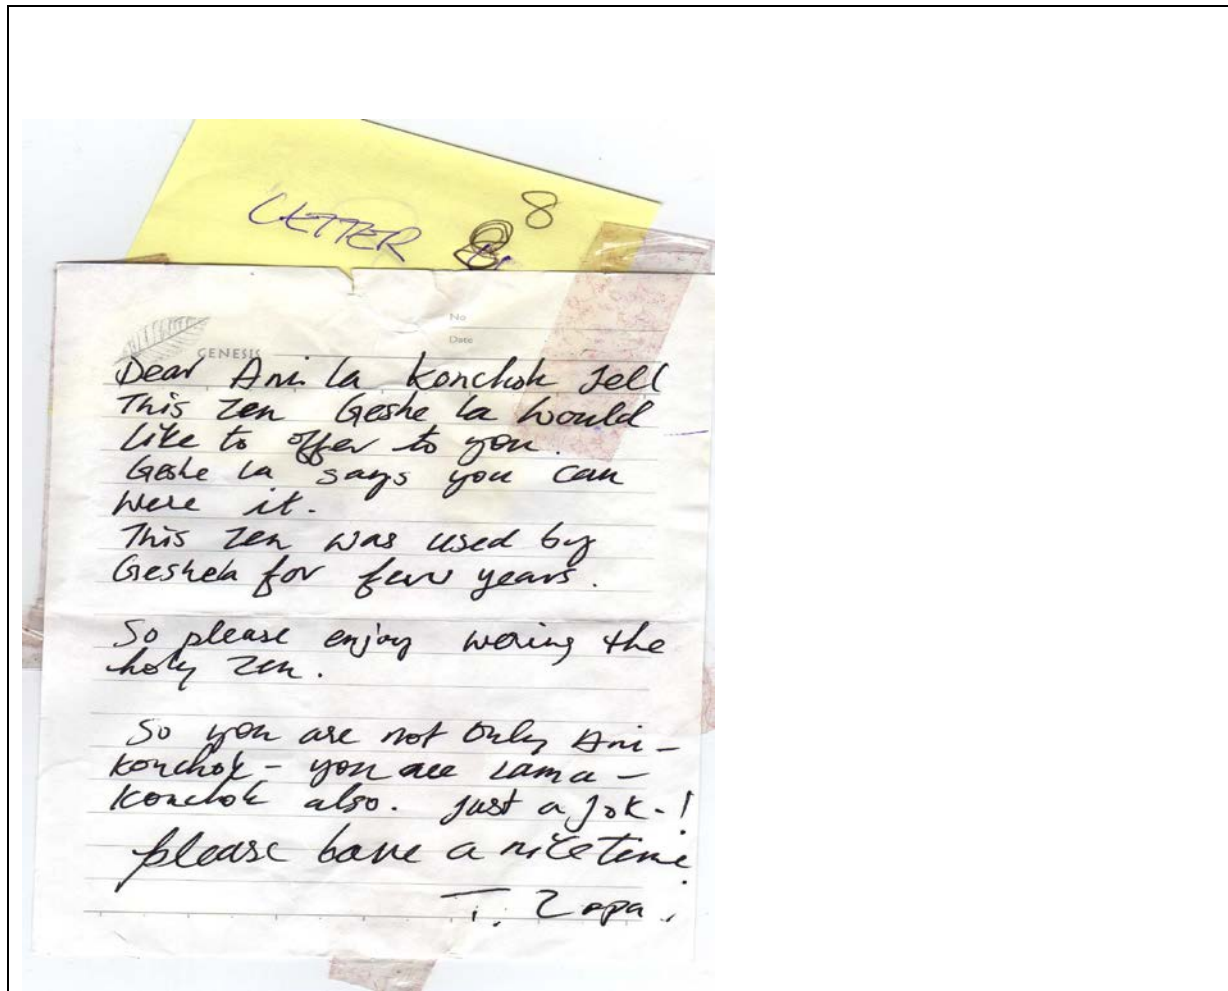 LETTER 8
No
Date
GENESIS
Dear Ani la Konchok Jell
This Zen Geshe la would
like to offer to you.
Geshe la says you can
were it.
This Zen was used by
Geshela for few years.
So please enjoy wering the
holy Zen.
So you are not only Ani-
Konchok - you are Lama -
Konchok also. Just a jok-!
please have a nice time
T. Zopa.